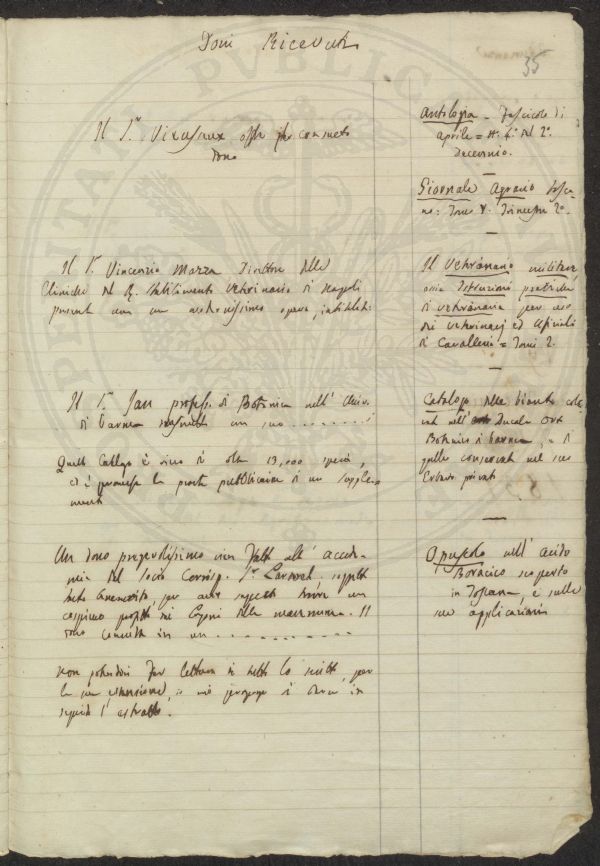 Doni Ricevuti
35
Il Sr. Vieusseux offre per consueto
dono
Antologia = Fascicolo di
aprile = N. 4. del 2.°
Decennio.
Giornale Agrario Tosca-
no: Tomo V. Trimestre 2.°
Il Sr. Vincenzio Mazza Direttore delle
Cliniche del R. Stabilimento Veterinario di Napoli
presenta con un opera, intitolata:
Il Veterinario militare
ossia Istruzioni pratiche
di veterinaria per uso
dei veterinarj ed Ufiziali
di Cavalleria = Tomi 2.
Il Sr. Jan profess. di Botanica nell' Univ.
di Parma un suo
Catalogo delle piante colti-
vate nell' Ducale Orto
Botanico di Parma, e di
quelle conservate nel suo
Erbario privato
Questo Catalogo è ricco di oltre 13,000 specie,
ed è promessa la pronta pubblicazione di un supple-
mento
Un dono pregevolissimo vien fatto all' accade-
mia dal Socio Corrisp. Sr. Larderel,
per aver saputo trarre un
cospicuo profitto dai Lagoni della maremma. Il
dono consiste in un
Opuscolo sull' acido
Boracico scoperto
in Toscana, e sulle
sue applicazioni
Non potendosi far lettura di tutto lo scritto, per
la sua estensione, si
seguito l' estratto.